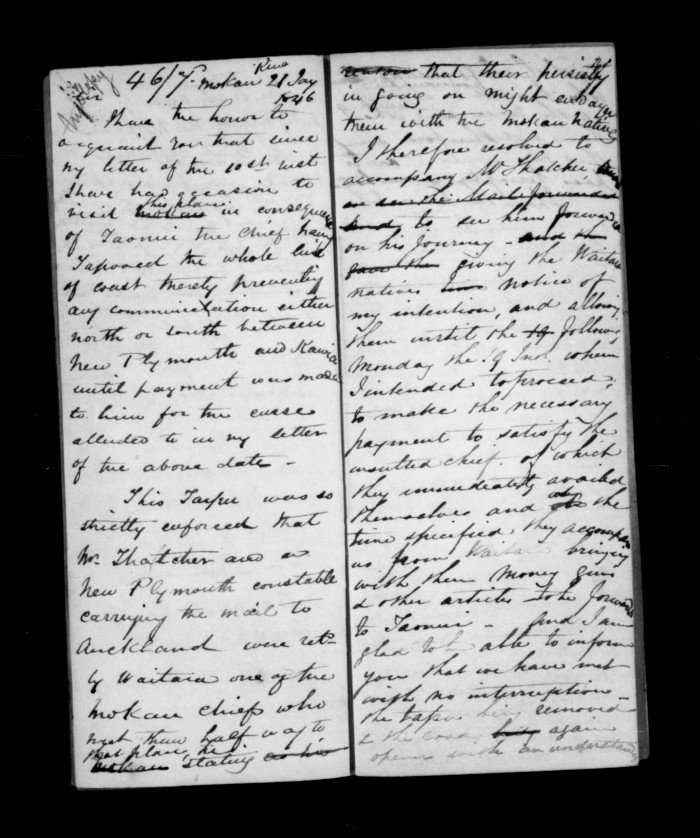 46/7. Mokau River 21 Jany
1846
Sir
I have the honor to
acquaint you that since
my letter of the 10st inst
I have had occasion to
visit this place in consequence
of Taonui the Chief having
Tapooed the whole line
of coast thereby preventing
any communication either
north or south between
New Plymouth and Kawia
until payment was made
to him for the curse
alluded to in my letter
of the above date -
This Tapu was so
strictly enforced that
Mr. Thatcher and a
New Plymouth constable
carrying the mail to
Auckland were
by Waitara one of the
Mokau chiefs who
met them half way to
that place, he
Mokau stating as his
reason that their persisting
in going on might embroil
them with the Mokau natives
I therefore resolved to
accompany Mr Thatcher
on the Mail forwards
and to see him forwards
on his journey - and the
giving the Waitara
natives notice of
my intention, and allowing
them until the 19 following
Monday the 19 Ind. when
I intended to proceed,
to make the necessary
payment to satisfy the
insulted chief. of which
they immediately availed
themselves and at the
time specified they accompanied
us from Waitara bringing
with them money guns
& other articles to be forwarded
to Taonui - and I am
glad to be able to inform
you that we have met
with no interruption -
the tapu being removed
& the coast being again
opened with an understanding